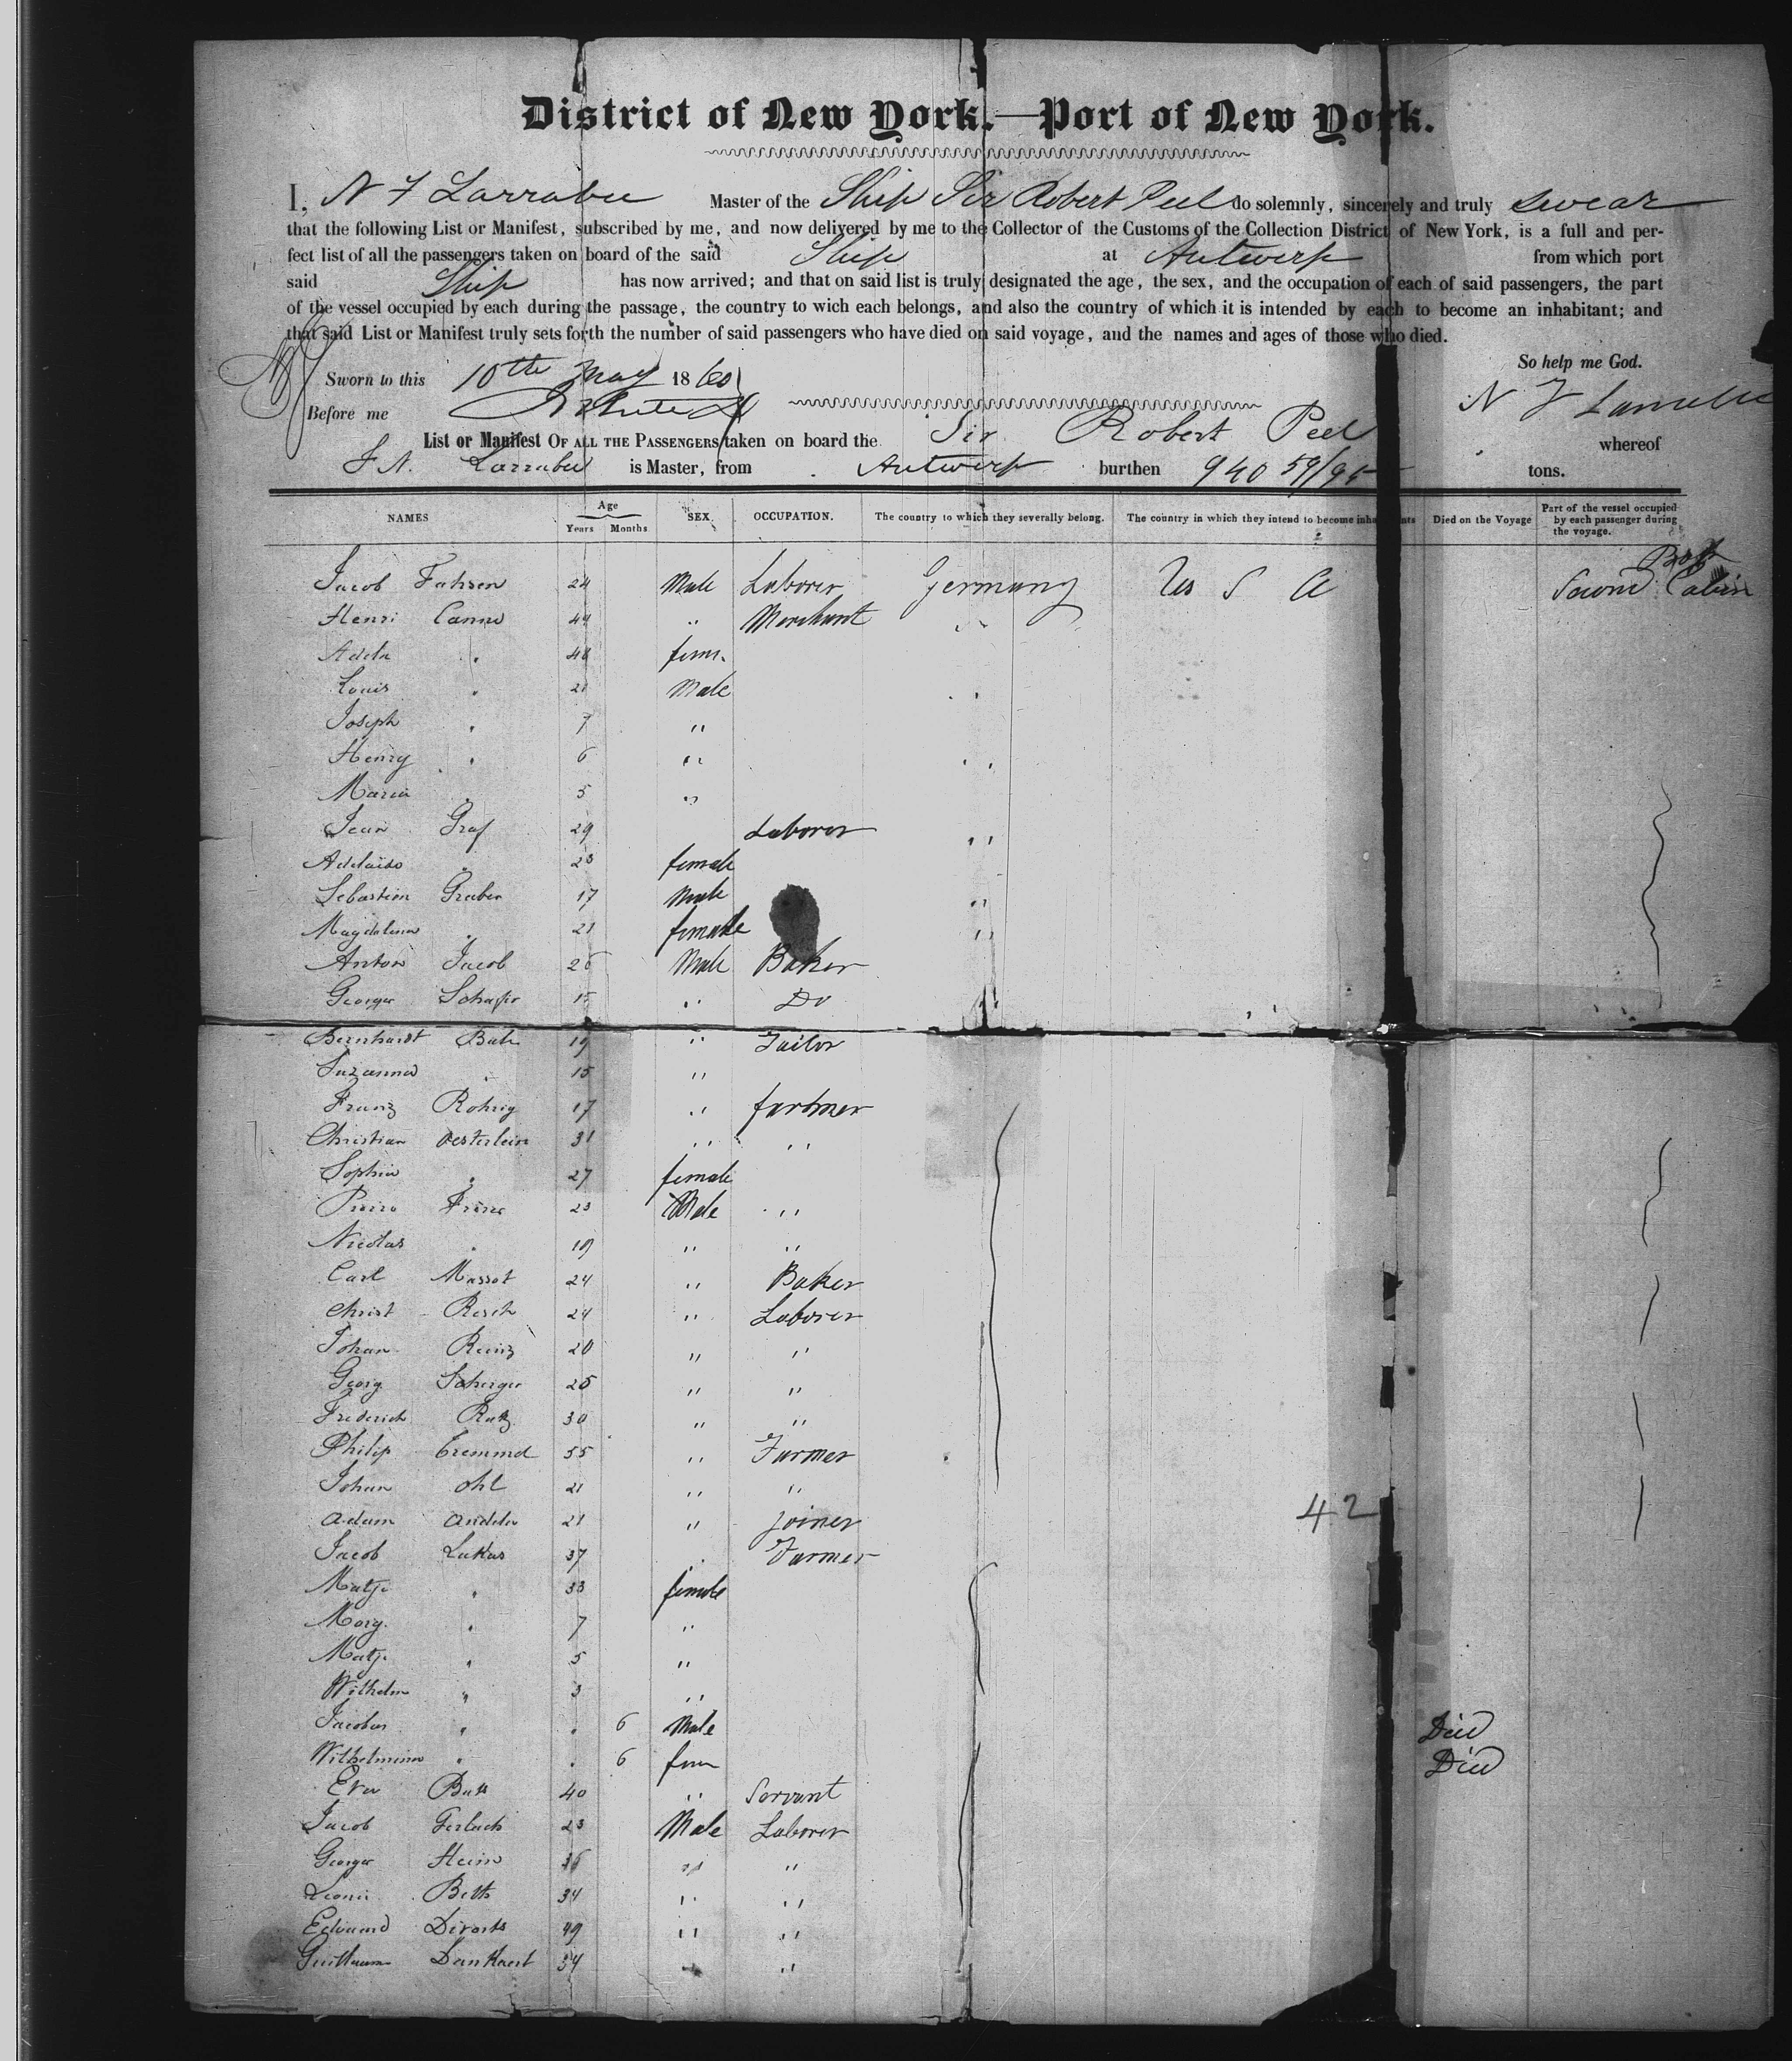 District of New York.—Port of New York.
I, N F Larrabee Master of the Ship Sir Robert Peel do solemnly, sincerely and truly swear
that the following List or Manifest, subscribed by me, and now delivered by me to the Collector of the Customs of the Collection District of New York, is a full and per-
fect list of all the passengers taken on board of the said Ship at Antwerp from which port
said Ship has now arrived; and that on said list is truly designated the age, the sex, and the occupation of each of said passengers, the part
of the vessel occupied by each during the passage, the country to wich each belongs, and also the country of which it is intended by each to become an inhabitant; and
that said List or Manifest truly sets forth the number of said passengers who have died on said voyage, and the names and ages of those who died.
So help me God.
Sworn to this 10th May 1860
Before me
N F Larrabee
List or Manifest OF ALL THE PASSENGERS taken on board the Sir Robert Peel whereof
Larrabee is Master, from Antwerp burthen 940 59/95 tons.
NAMES Age Years Months SEX. OCCUPATION. The country to which they severally belong. The country in which they intend to become inhabitants Died on the Voyage Part of the vessel occupied by each passenger during the voyage.
Jacob Fahsen 24 Male Laborer Germany U S A Second Cabin
Henri Canne 44 " Merchant "
Adele " 40 fem.
Louis " 21 Male "
Joseph " 7 "
Henry " 6 " "
Maria " 5 "
Jean Graf 29 Laborer "
Adelaide " 23 female
Sebastian Gruber 17 Male "
Magdalena " 21 female "
Anton Jacob 26 Male Baker
George Schafer 15 " Do
Bernhardt 19 " Tailor
Suzanna " 15 "
Franz Rohrig 17 " farmer
Christian Oesterlein 31 " "
Sophia " 27 female
23 Male "
Nicolas " 19 " "
Carl Massot 24 " Baker
Christ Resch 24 " Laborer
Johan 20 " "
Georg Scherger 25 " "
Frederich 30 " "
Philip Gremmel 55 " Farmer
Johan Ohl 21 " "
Adam 21 " Joiner 42
Jacob Lukas 37 " Farmer
Matje " 33 female
Marg. " 7 "
Matje " 5 "
Wilhelm " 3 "
Jacobus " " 6 Male Died
Wilhelmina " " 6 fem Died
Eva 40 " Servant
Jacob Gerlach 23 Male Laborer
George Heim 36 " "
34 " "
Edouard 49 " "
Guillaume Dankaert 34 " "